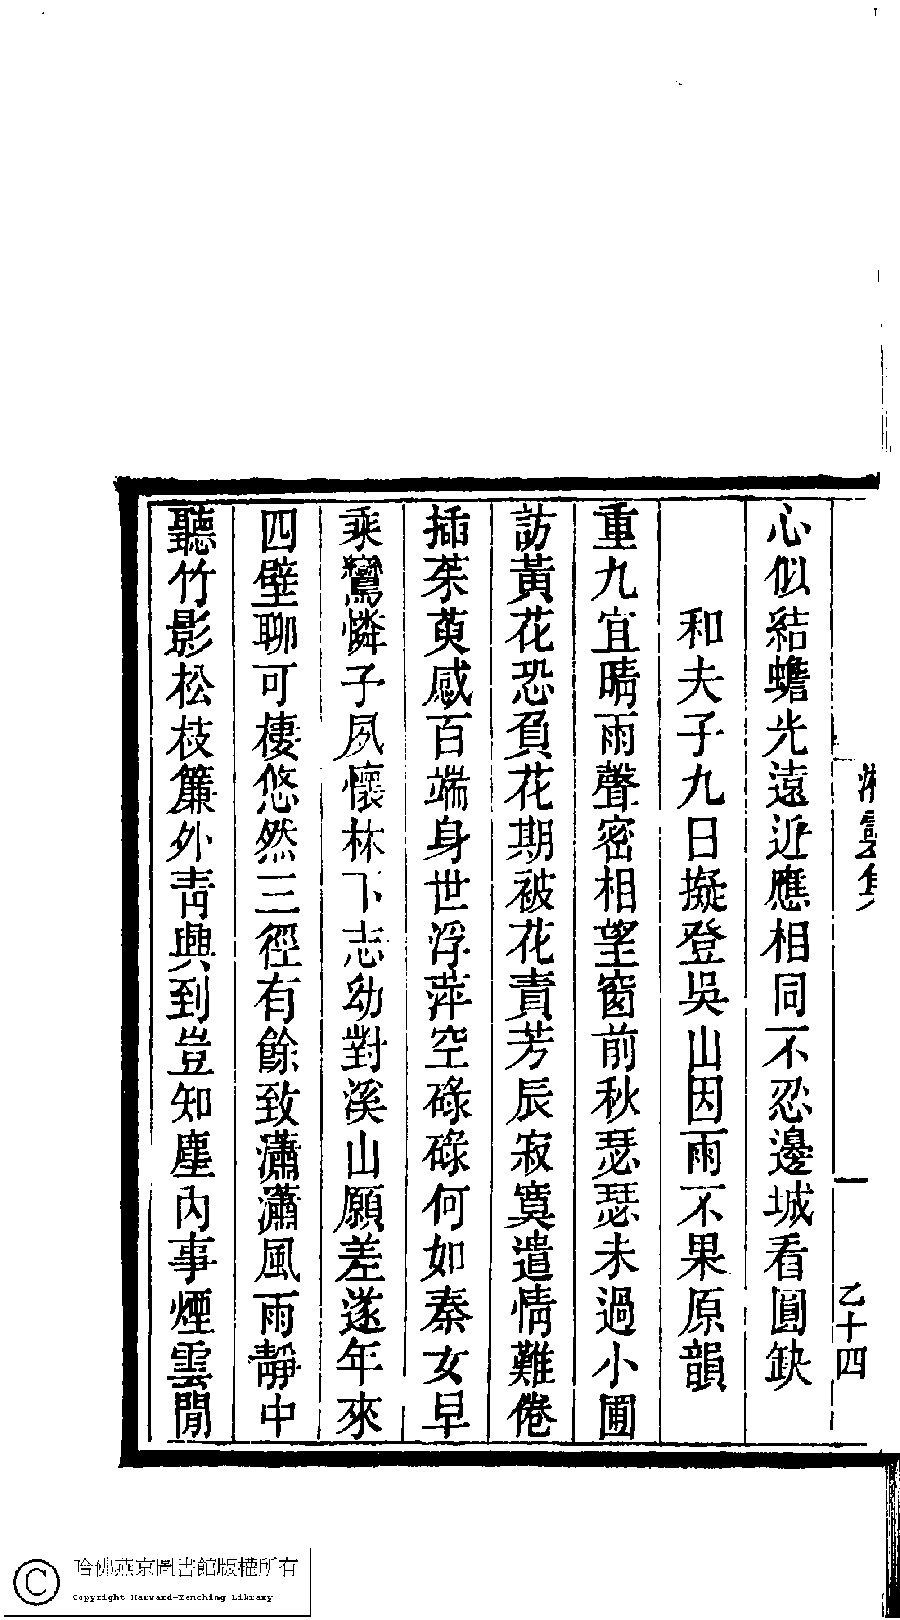 心似結蟾光遠近應相同不忍邊城看圓缺
和夫子九日擬登吳山因雨不果原韻
重九宜晴雨聲密相望窗前秋瑟瑟未過小圃
訪黃花恐負花期被花責芳辰寂寞遣情難倦
插茱萸感百端身世浮萍空碌碌何如秦女早
乘鸞憐子夙懷林下志幼對溪山願差遂年來
四壁聊可棲悠然三徑有餘致瀟瀟風雨靜中
聽竹影松枝簾外青興到豈知塵內事煙雲閒
集
一
乙十四
哈佛燕京圖書館版權所有
Copyright Harvard-Yenching Library